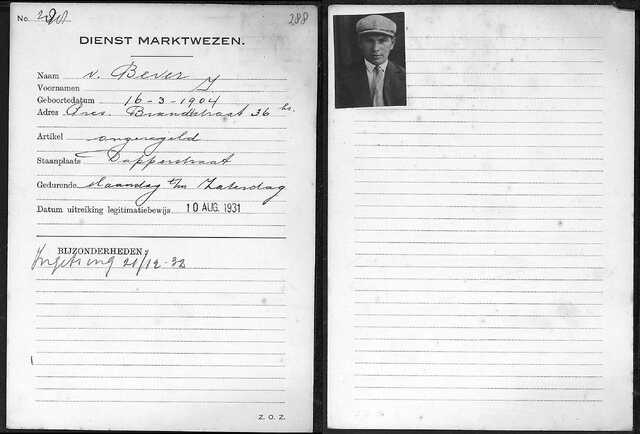 No. 288
DIENST MARKTWEZEN.
Naam v. Bever
Voornamen J.
Geboortedatum 16-3-1904
Adres Pres. Brandstraat 36 hs.
Artikel ongeregeld
Staanplaats Dapperstraat
Gedurende Maandag t/m Zaterdag
Datum uitreiking legitimatiebewijs 10 AUG. 1931
BIJZONDERHEDEN:
21/12-32
Z. O. Z.